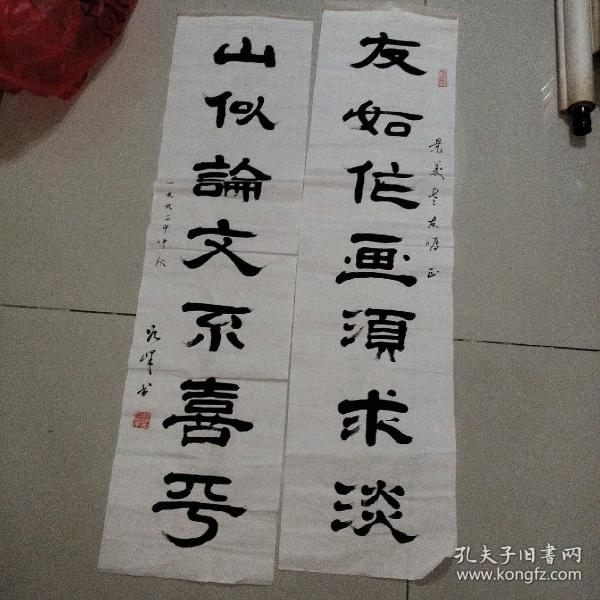 友如作画須求淡
山似論文不喜平
一九九二年仲秋
孔夫子旧书网
www.kongfz.com